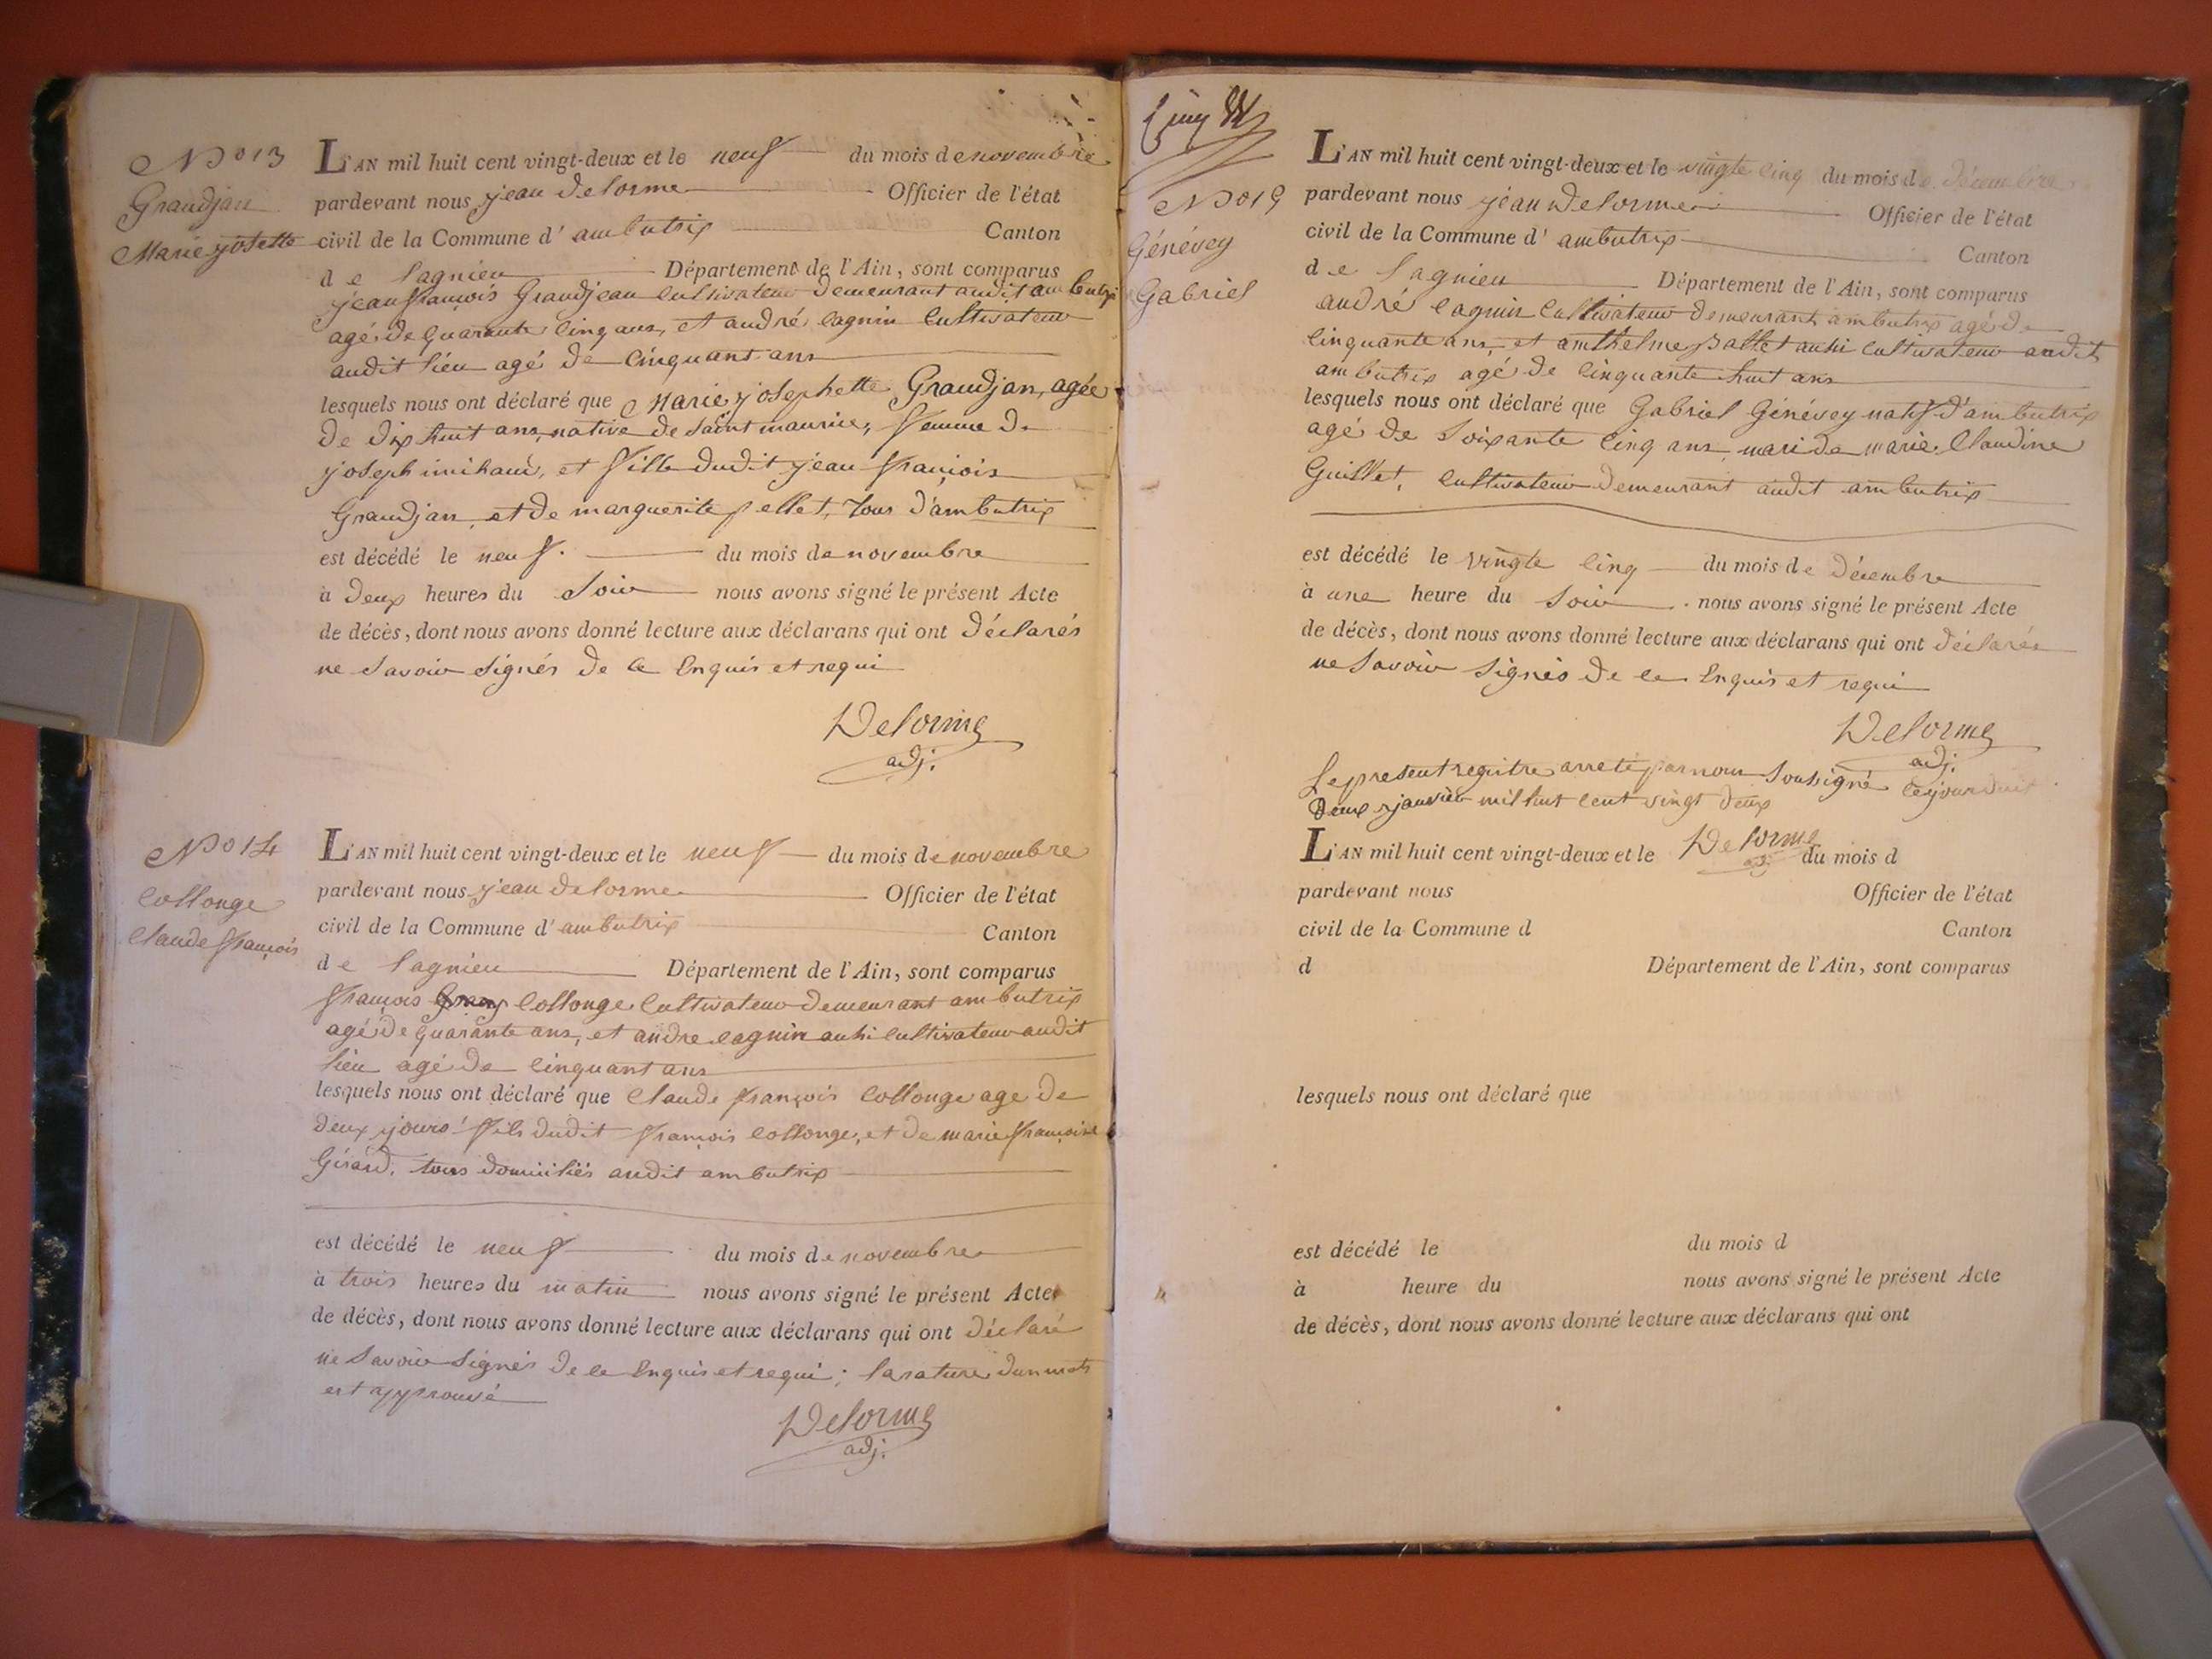 N° 13
Grandjan
Marie josette
L'AN mil huit cent vingt-deux et le neuf du mois de novembre
pardevant nous jean Delorme Officier de l'état
civil de la Commune d' ambutrix Canton
de lagnieu Département de l'Ain, sont comparus
jean françois Grandjean cultivateur demeurant audit ambutrix
agé de quarante cinq ans, et andré cagnin cultivateur
audit lieu agé de cinquant ans
lesquels nous ont déclaré que Marie josephette Grandjan, agée
de dix huit ans, native de saint maurice, femme de
joseph et fille dudit jean françois
Grandjan, et de marguerite pellet, tous d'ambutrix
est décédé le neuf du mois de novembre
à deux heures du soir nous avons signé le présent Acte
de décès, dont nous avons donné lecture aux déclarans qui ont déclarés
ne savoir signés de ce enquis et requi
Delorme
adj.
N° 14
Collonge
Claude françois
L'AN mil huit cent vingt-deux et le neuf du mois de novembre
pardevant nous jean delorme Officier de l'état
civil de la Commune d' ambutrix Canton
de lagnieu Département de l'Ain, sont comparus
françois collonge cultivateur demeurant ambutrix
agé de quarante ans, et andre cagnin aussi cultivateur audit
lieu agé de cinquant ans
lesquels nous ont déclaré que Claude françois Collonge age de
deux jours fils dudit françois collonge, et de marie françoise
Girard, tous domiciliés audit ambutrix
est décédé le neuf du mois de novembre
à trois heures du matin nous avons signé le présent Acte
de décès, dont nous avons donné lecture aux déclarans qui ont déclaré
ne savoir signés de ce enquis et requi; la rature dun mots
est approuvé
Delorme
adj.
Cinq
N° 15
Génévey
Gabriel
L'AN mil huit cent vingt-deux et le vingte cinq du mois de décembre
pardevant nous jean Delorme Officier de l'état
civil de la Commune d' ambutrix Canton
de lagnieu Département de l'Ain, sont comparus
andré cagnin cultivateur demeurant ambutrix agé de
cinquante ans, et amthelme Ballet aussi cultivateur audit
ambutrix agé de cinquante huit ans
lesquels nous ont déclaré que Gabriel Génévey natif d'ambutrix
agé de soixante cinq ans, mari de marie Claudine
Guillet, cultivateur demeurant audit ambutrix
est décédé le vingte cinq du mois de décembre
à une heure du soir nous avons signé le présent Acte
de décès, dont nous avons donné lecture aux déclarans qui ont déclarés
ne savoir signés de ce enquis et requi
Delorme
adj.
Le present registre arreté par nous soussigné cejourduit
Deux janvier mil huit cent vingt deux
Delorme
adj.
L'AN mil huit cent vingt-deux et le du mois d
pardevant nous Officier de l'état
civil de la Commune d Canton
d Département de l'Ain, sont comparus
lesquels nous ont déclaré que
est décédé le du mois d
à heure du nous avons signé le présent Acte
de décès, dont nous avons donné lecture aux déclarans qui ont